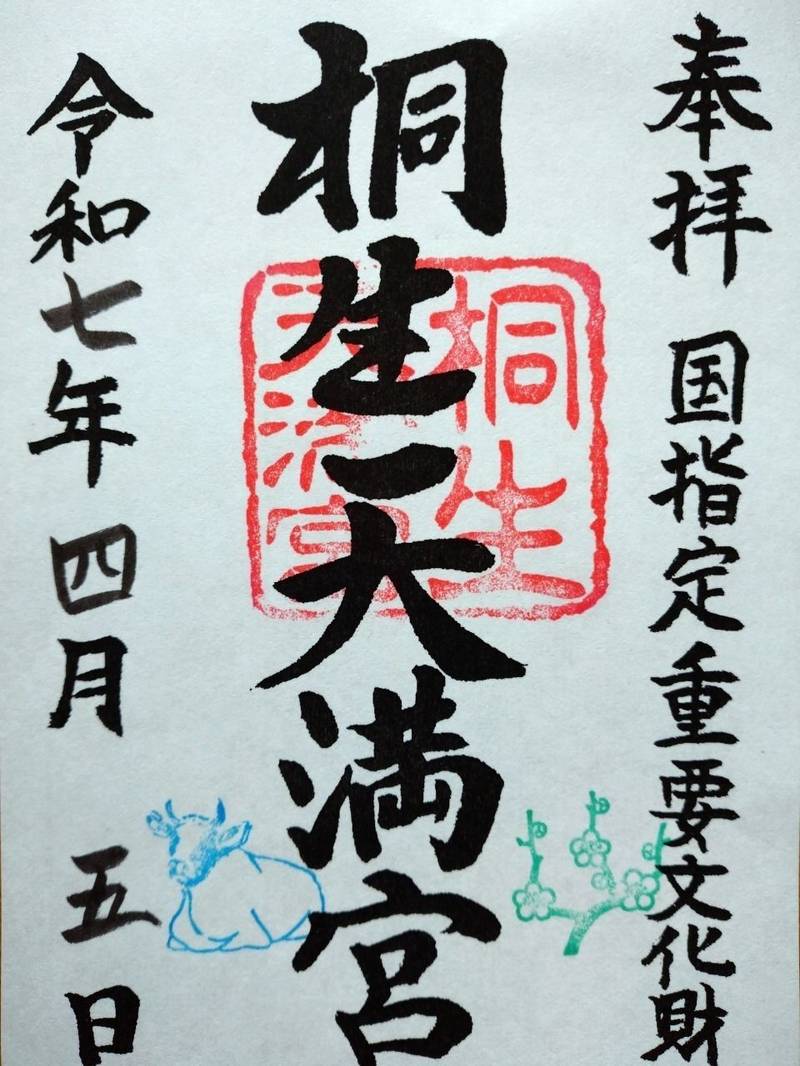 奉拝 国指定重要文化財
桐生天満宮
令和七年四月五日
桐生
天満宮